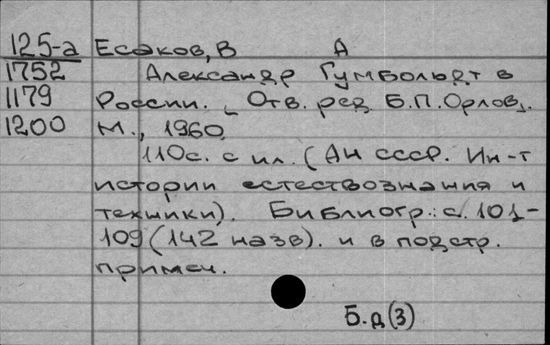 125-а Есаков, В А
1752 Александр Гумбольдт в
1179 России. [Отв. ред Б.П.Орлов].
1200 М., 1960
110с. с ил. (АН СССР. Ин-т
истории естествознания и
техники). Библиогр.: с. 101-
109 (142 назв). и в подстр.
примеч.
Б.д(3)